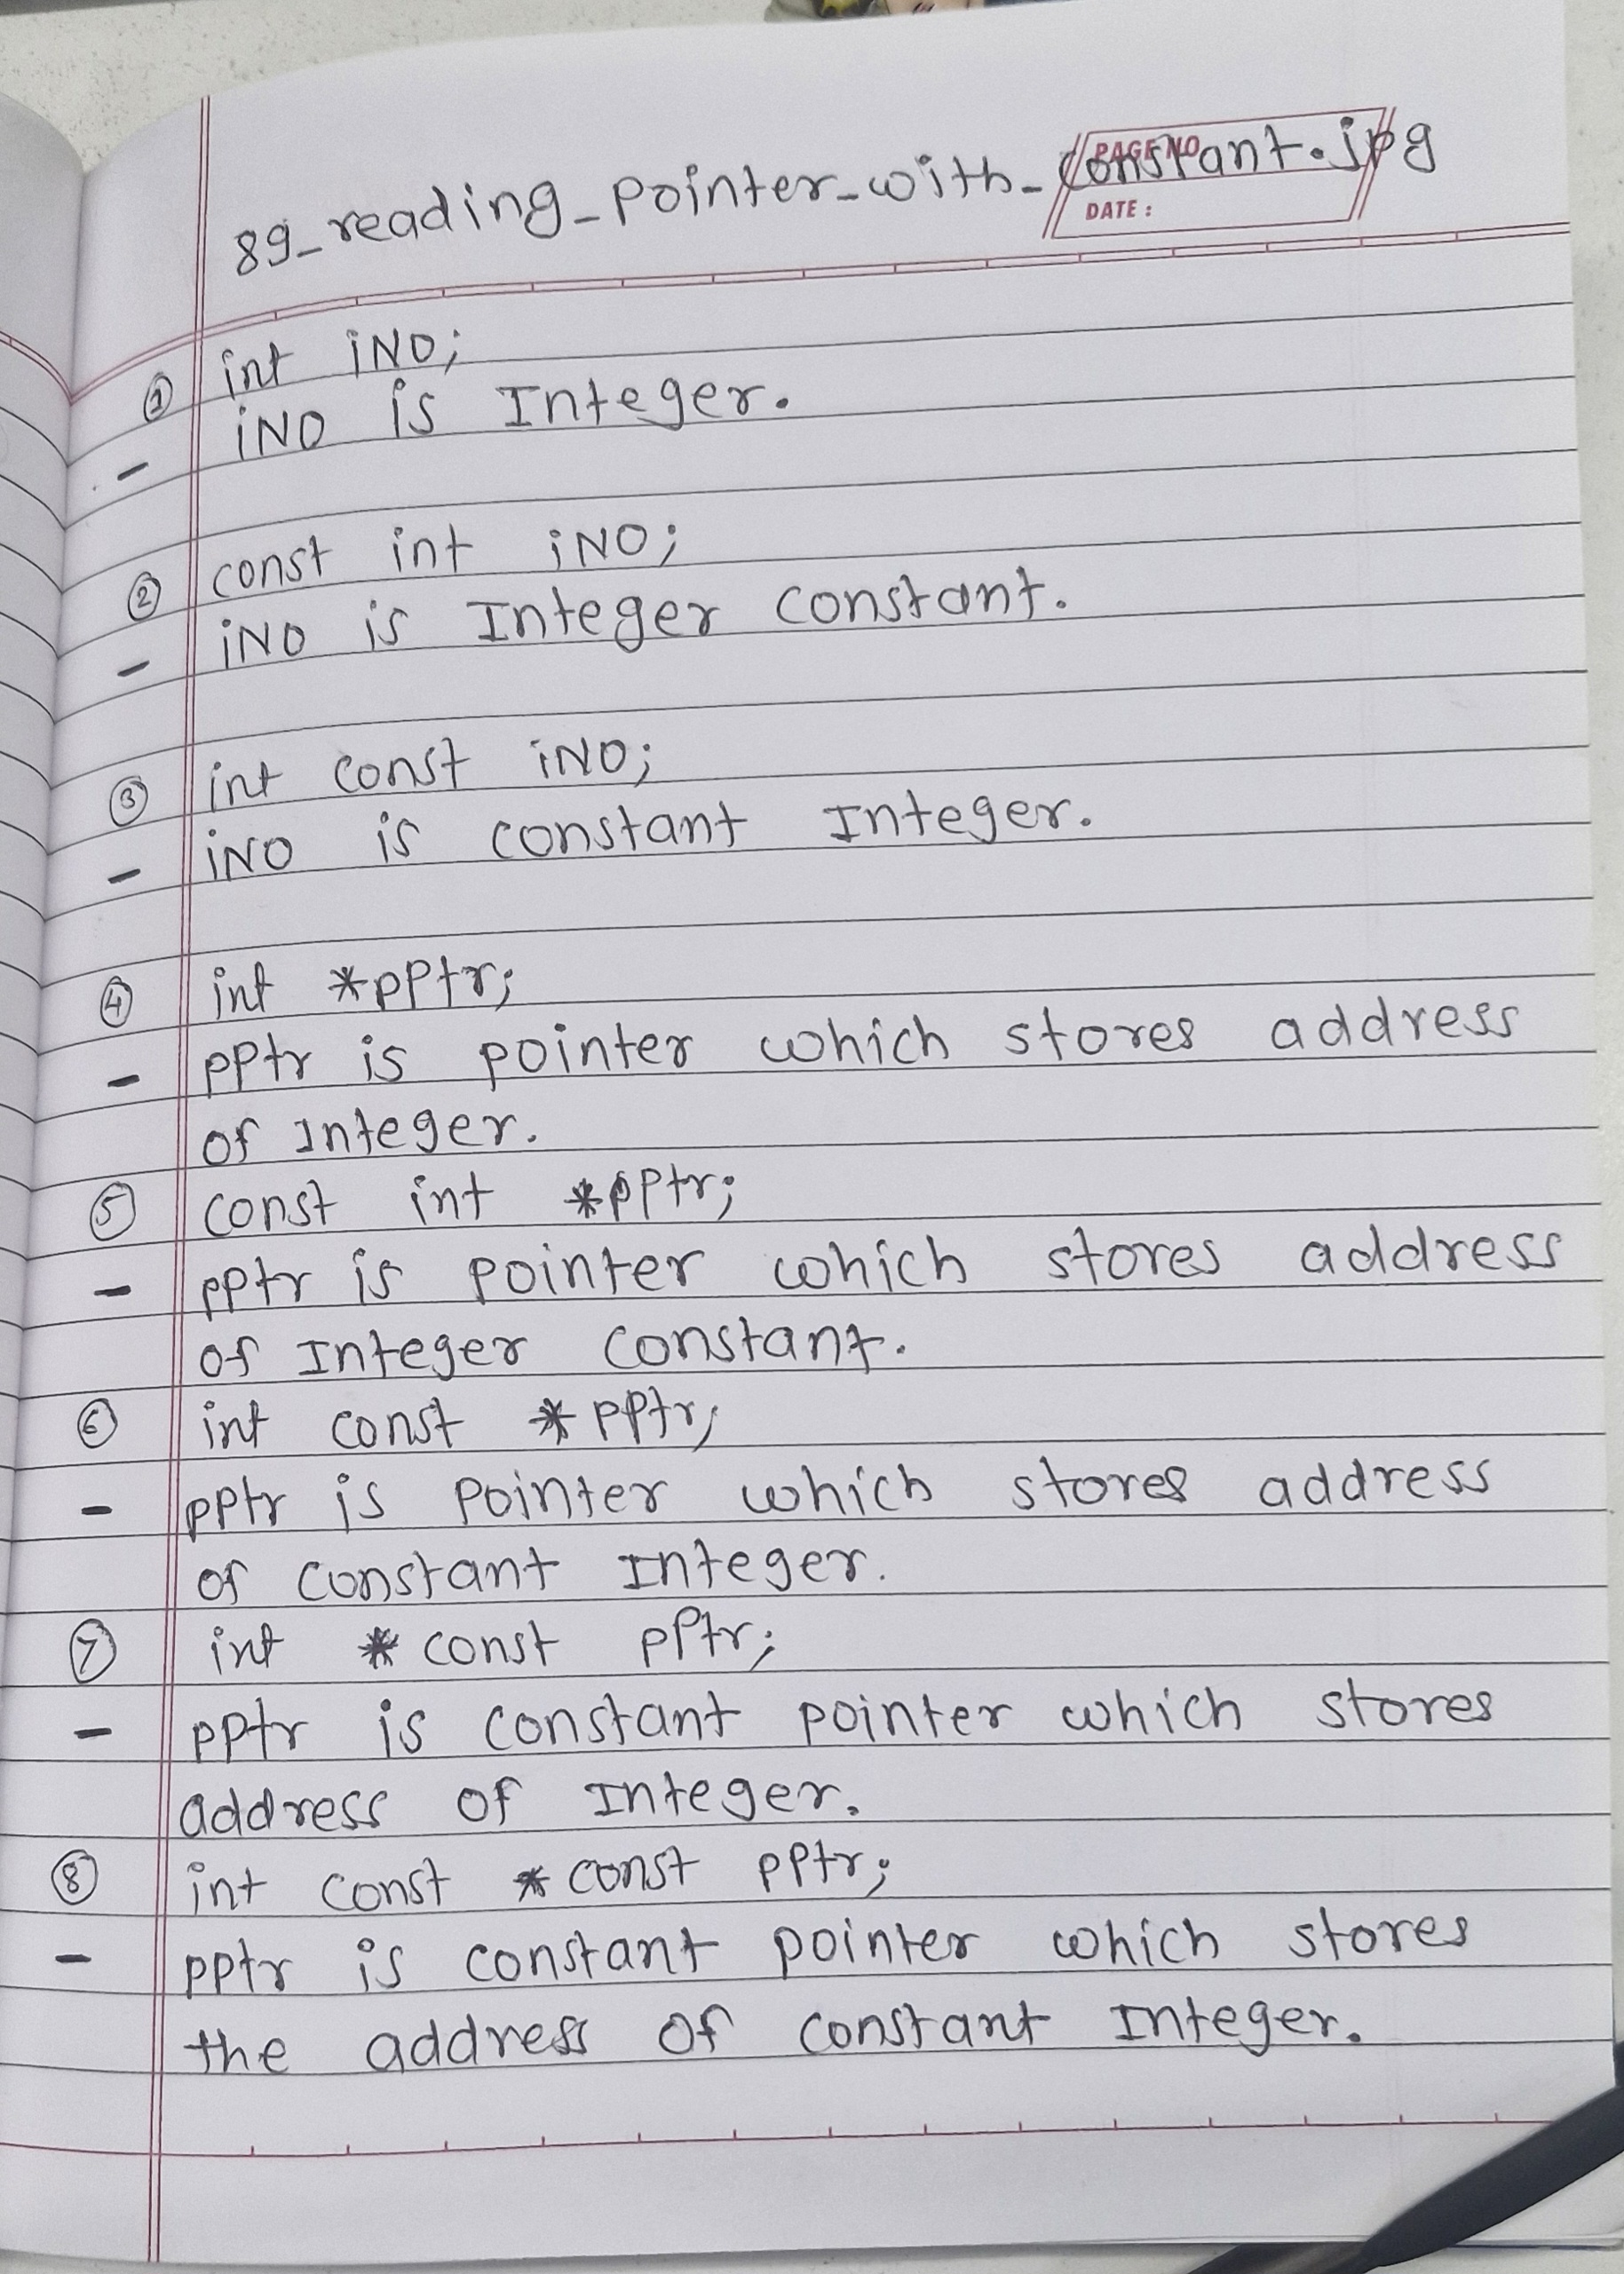 PAGE NO
89_reading_pointer_with_constant.jpg
DATE :
① int iNO;
- iNO is Integer.
② const int iNO;
- iNO is Integer constant.
③ int const iNO;
- iNO is constant Integer.
④ int *pptr;
- pptr is pointer which stores address
of Integer.
⑤ const int *pptr;
- pptr is pointer which stores address
of Integer constant.
⑥ int const *pptr;
- pptr is pointer which stores address
of constant Integer.
⑦ int * const pptr;
- pptr is constant pointer which stores
address of Integer.
⑧ int const * const pptr;
- pptr is constant pointer which stores
the address of constant Integer.